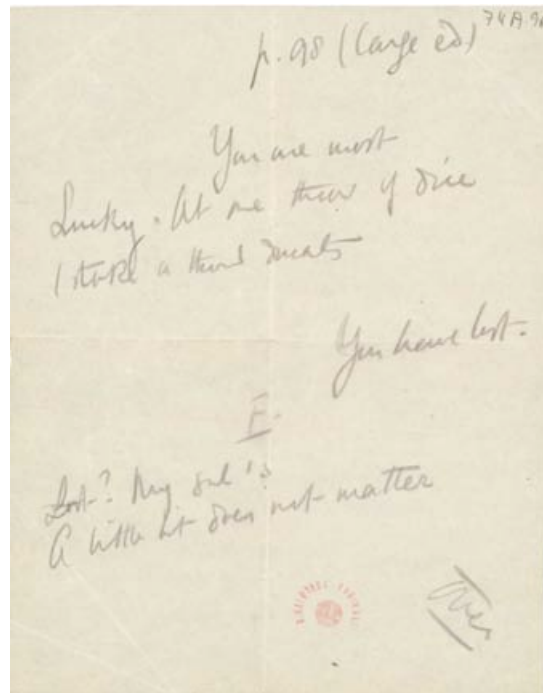 p. 98 (Large ed)
You are most
Lucky. At one throw of dice
I stake a thousd ducats
You have lost.
F.
Lost?
A little bit does not matter
Over